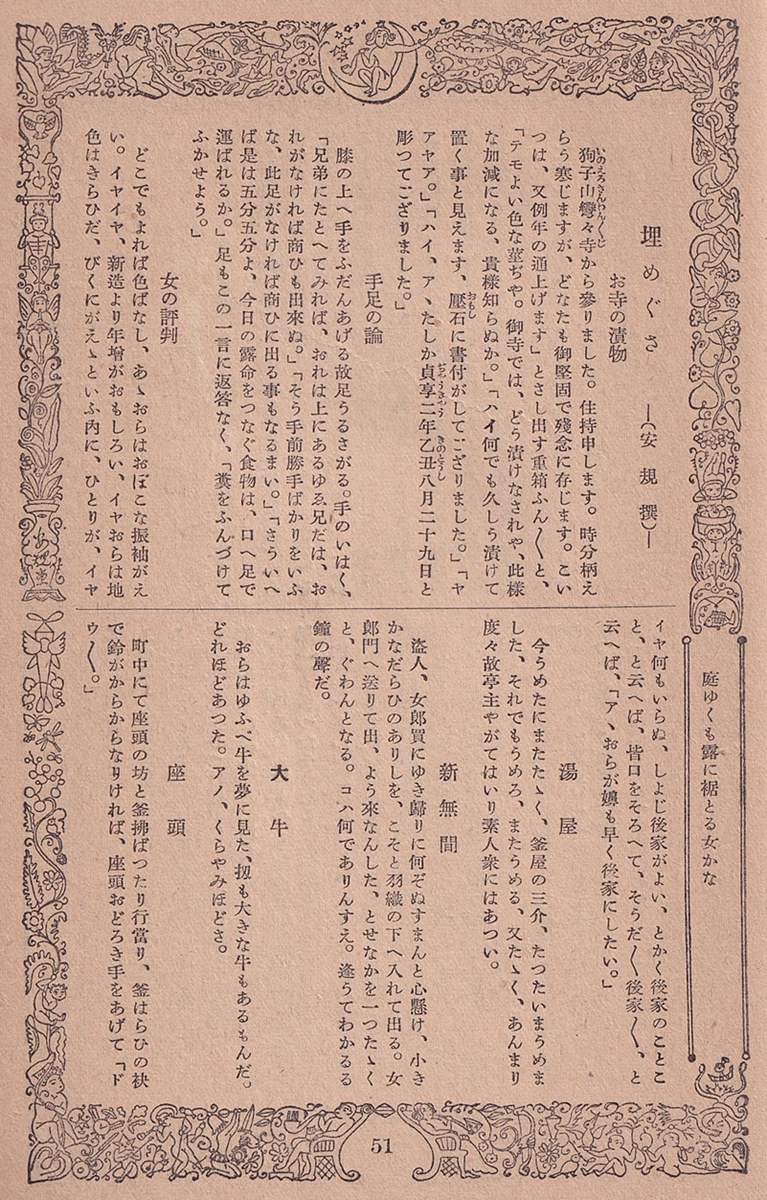 埋めぐさ ―(安規撰)―
お寺の漬物
狗子山彎々寺から參りました。住持申します。時分柄え
らう寒じますが、どなたも御堅固で殘念に存じます。こい
つは、又例年の通上げます」とさし出す重箱ふん〳〵と、
「テモよい色な莖ぢや。御寺では、どう漬けなされや、此樣
な加減になる、貴樣知らぬか。」「ハイ何でも久しう漬けて
置く事と見えます、壓石に書付がしてござりました。」「ヤ
アヤア。」「ハイ、アヽたしか貞享二年乙丑八月二十九日と
彫つてござりました。」
手足の論
膝の上へ手をふだんあげる故足うるさがる。手のいはく、
「兄弟にたとへてみれば、おれは上にあるゆゑ兄だは、お
れがなければ商ひも出來ぬ。」「そう手前勝手ばかりをいふ
な、此足がなければ商ひに出る事もなるまい。」「さういへ
ば是は五分五分よ、今日の露命をつなぐ食物は、口へ足で
運ばれるか。」足もこの一言に返答なく、「糞をふんづけて
ふかせよう。」
女の評判
どこでもよれば色ばなし、あゝおらはおぼこな振袖がえ
い。イヤイヤ、新造より年增がおもしろい、イヤおらは地
色はきらひだ、びくにがえゝといふ內に、ひとりが、イヤ
庭ゆくも露に裾とる女かな
イヤ何もいらぬ、しよじ後家がよい、とかく後家のことこ
と、と云へば、皆口をそろへて、そうだ〳〵後家〳〵、と
云へば、「アヽおらが嬶も早く後家にしたい。」
湯屋
今うめたにまたたゝく、釜屋の三介、たつたいまうめま
した、それでもうめろ、またうめる、又たゝく、あんまり
度々故亭主やがてはいり素人衆にはあつい。
新無間
盜人、女郎買にゆき歸りに何ぞぬすまんと心懸け、小き
かなだらひのありしを、こそと羽織の下へ入れて出る。女
郎門へ送りて出、よう來なんした、とせなかを一つたゝく
と、ぐわんとなる。コハ何でありんすえ。逢うてわかるる
鐘の聲だ。
大牛
おらはゆふべ牛を夢に見た、扨も大きな牛もあるもんだ。
どれほどあつた。アノ、くらやみほどさ。
座頭
町中にて座頭の坊と釜拂ばつたり行當り、釜はらひの袂
で鈴がからからなりければ、座頭おどろき手をあげて「ド
ウ〳〵。」
51